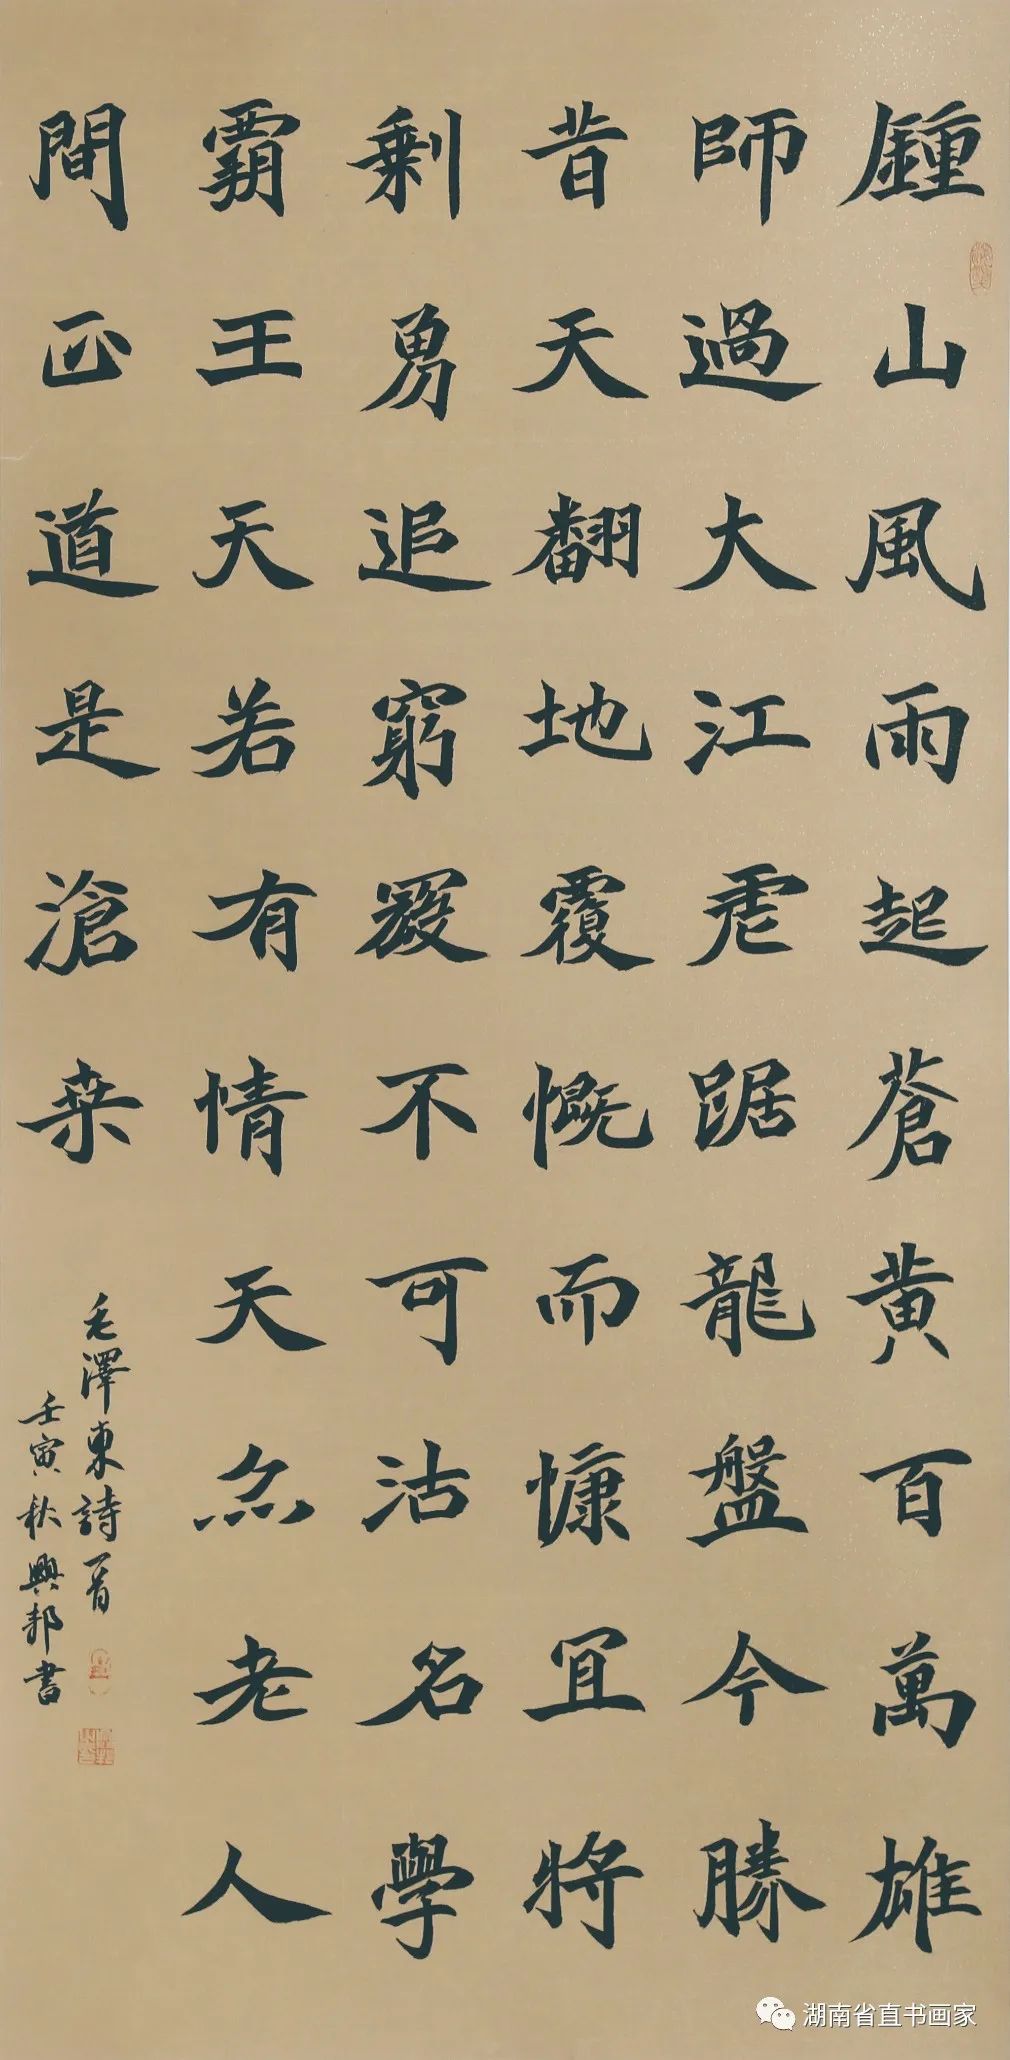 鍾山風雨起蒼黃百萬雄
師過大江虎踞龍盤今勝
昔天翻地覆慨而慷宜將
剩勇追窮寇不可沽名學
霸王天若有情天亦老人
間正道是滄桑
毛澤東詩一首
壬寅秋興邦書
湖南省直书画家